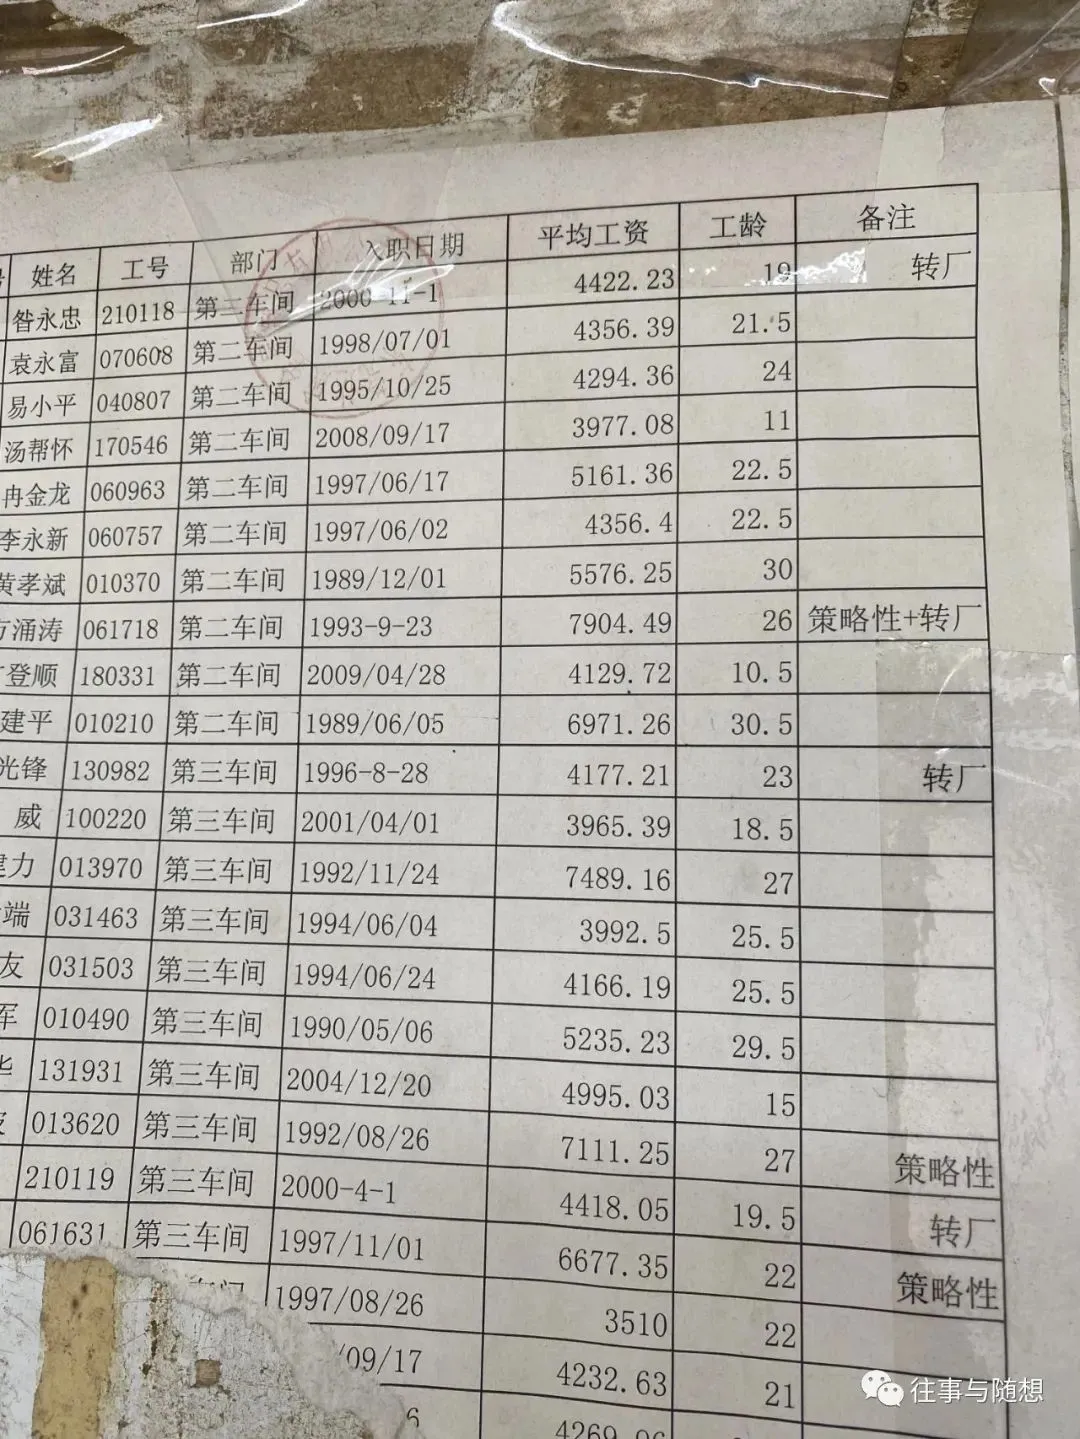 姓名 工号 部门 入职日期 平均工资 工龄 备注
昝永忠 210118 第二车间 2000-11-1 4422.23 19 转厂
袁永富 070608 第二车间 1998/07/01 4356.39 21.5
易小平 040807 第二车间 1995/10/25 4294.36 24
汤帮怀 170546 第二车间 2008/09/17 3977.08 11
冉金龙 060963 第二车间 1997/06/17 5161.36 22.5
李永新 060757 第二车间 1997/06/02 4356.4 22.5
黄孝斌 010370 第二车间 1989/12/01 5576.25 30
涌涛 061718 第二车间 1993-9-23 7904.49 26 策略性+转厂
登顺 180331 第二车间 2009/04/28 4129.72 10.5
建平 010210 第二车间 1989/06/05 6971.26 30.5
光锋 130982 第三车间 1996-8-28 4177.21 23 转厂
威 100220 第三车间 2001/04/01 3965.39 18.5
建力 013970 第三车间 1992/11/24 7489.16 27
端 031463 第三车间 1994/06/04 3992.5 25.5
友 031503 第三车间 1994/06/24 4166.19 25.5
军 010490 第三车间 1990/05/06 5235.23 29.5
华 131931 第三车间 2004/12/20 4995.03 15
013620 第三车间 1992/08/26 7111.25 27 策略性
210119 第三车间 2000-4-1 4418.05 19.5 转厂
061631 第三车间 1997/11/01 6677.35 22 策略性
1997/08/26 3510 22
/09/17 4232.63 21
6 4269.06
往事与随想